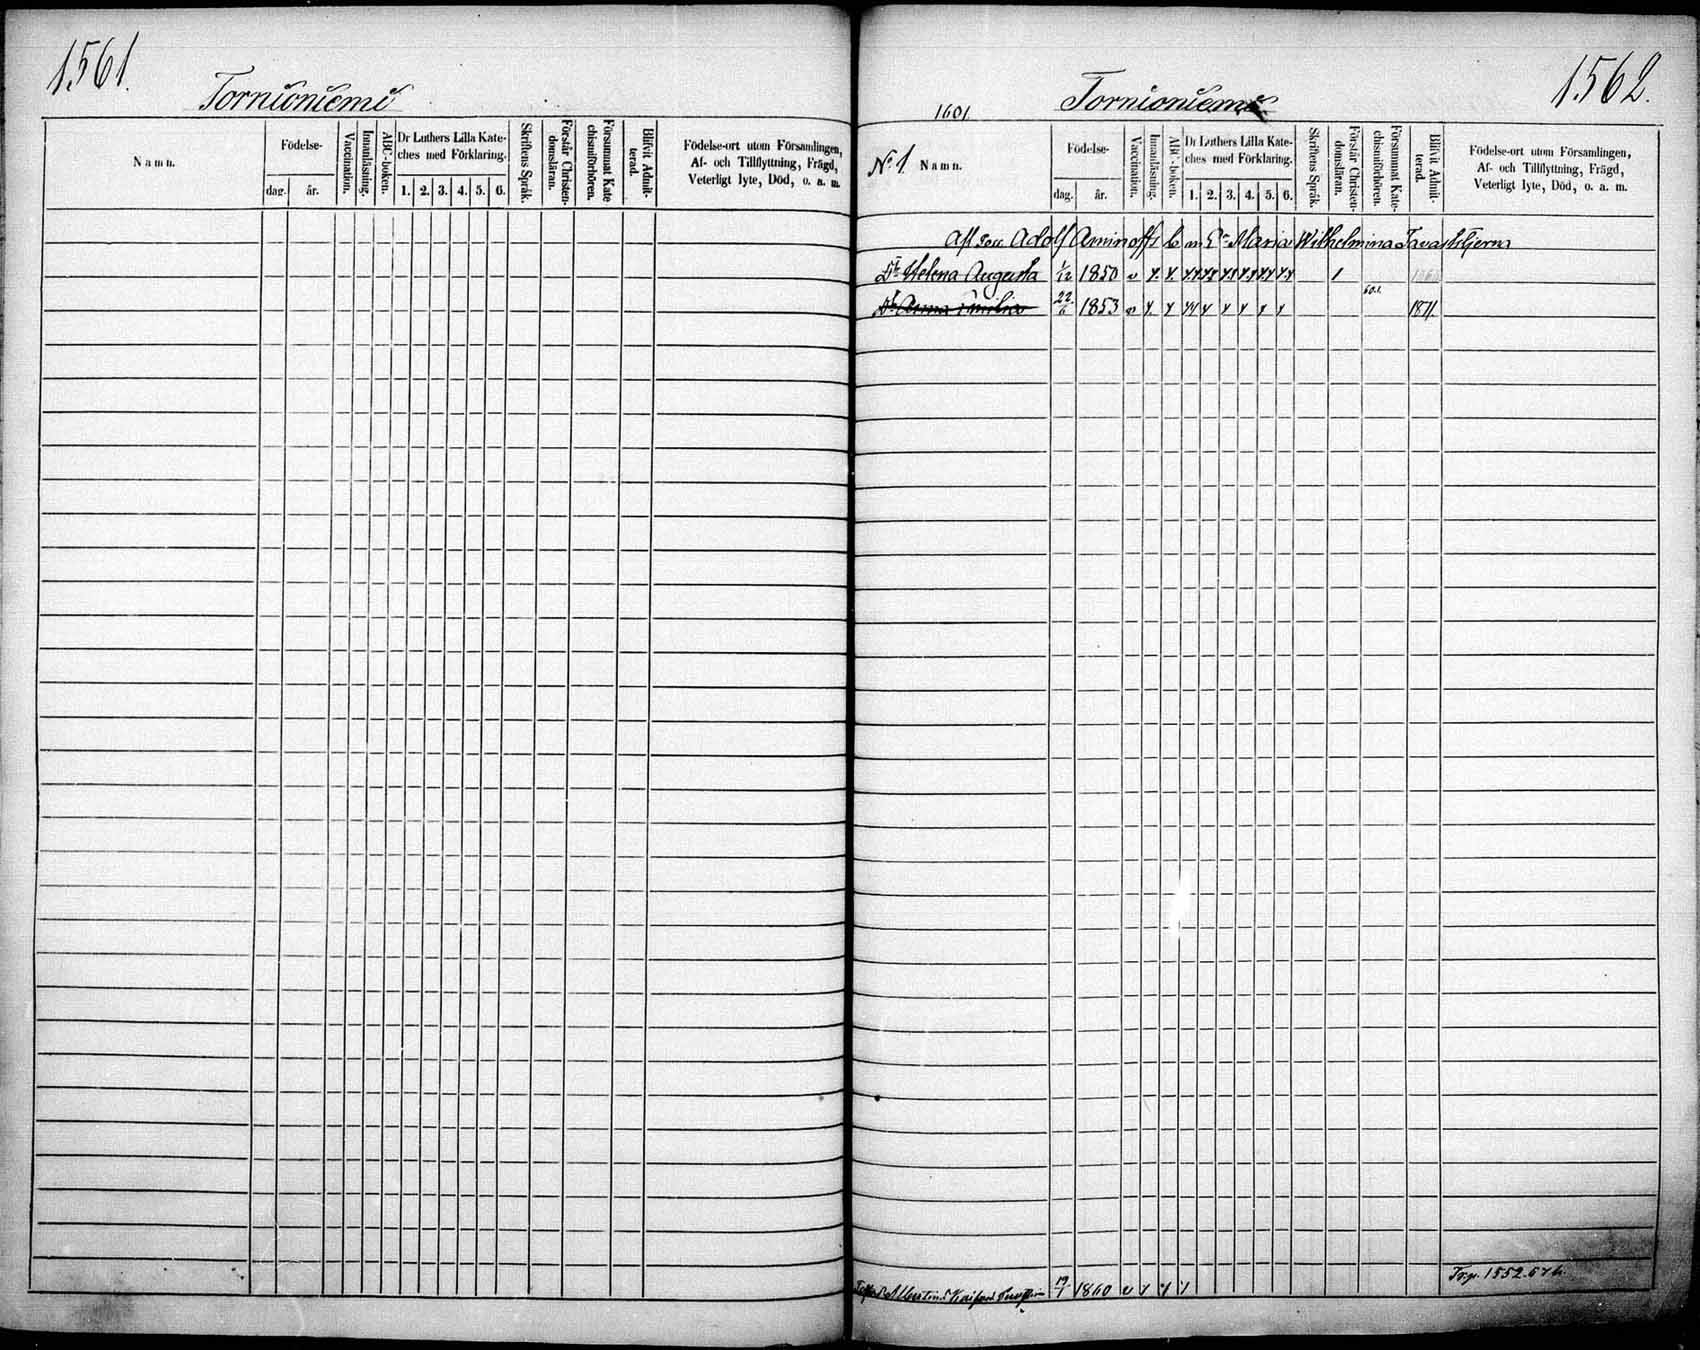 1561.
Tornioniemi
Namn.
Födelse-
dag.
år.
Vaccination.
Innanläsning.
ABC-boken.
Dr Luthers Lilla Kate-
ches med Förklaring.
1. 2. 3. 4. 5. 6.
Skriftens Språk.
Förstår Christen-
domsläran.
Försummat Kate
chismiförhören.
Blifvit Admit-
terad.
Födelse-ort utom Församlingen,
Af- och Tillflyttning, Frägd,
Veterligt lyte, Död, o. a. m.
1562.
1601
Tornioniemi
No 1 Namn.
Födelse-
dag.
år.
Vaccination.
Innanläsning.
ABC-boken.
Dr Luthers Lilla Kate-
ches med Förklaring.
1. 2. 3. 4. 5. 6.
Skriftens Språk.
Förstår Christen-
domsläran.
Försummat Kate-
chismiförhören.
Blifvit Admit-
terad.
Födelse-ort utom Församlingen,
Af- och Tillflyttning, Frägd,
Veterligt lyte, Död, o. a. m.
Adolf Aminoffs b m Maria Wilhelmina Tavaststjerna
Dr Helena Augusta 1/12 1850 v
60.1.
Dr Anna Emilia 22/6 1853 v 1871.
Albertina 19/1 1860 v
Tr.p. 1552.576.